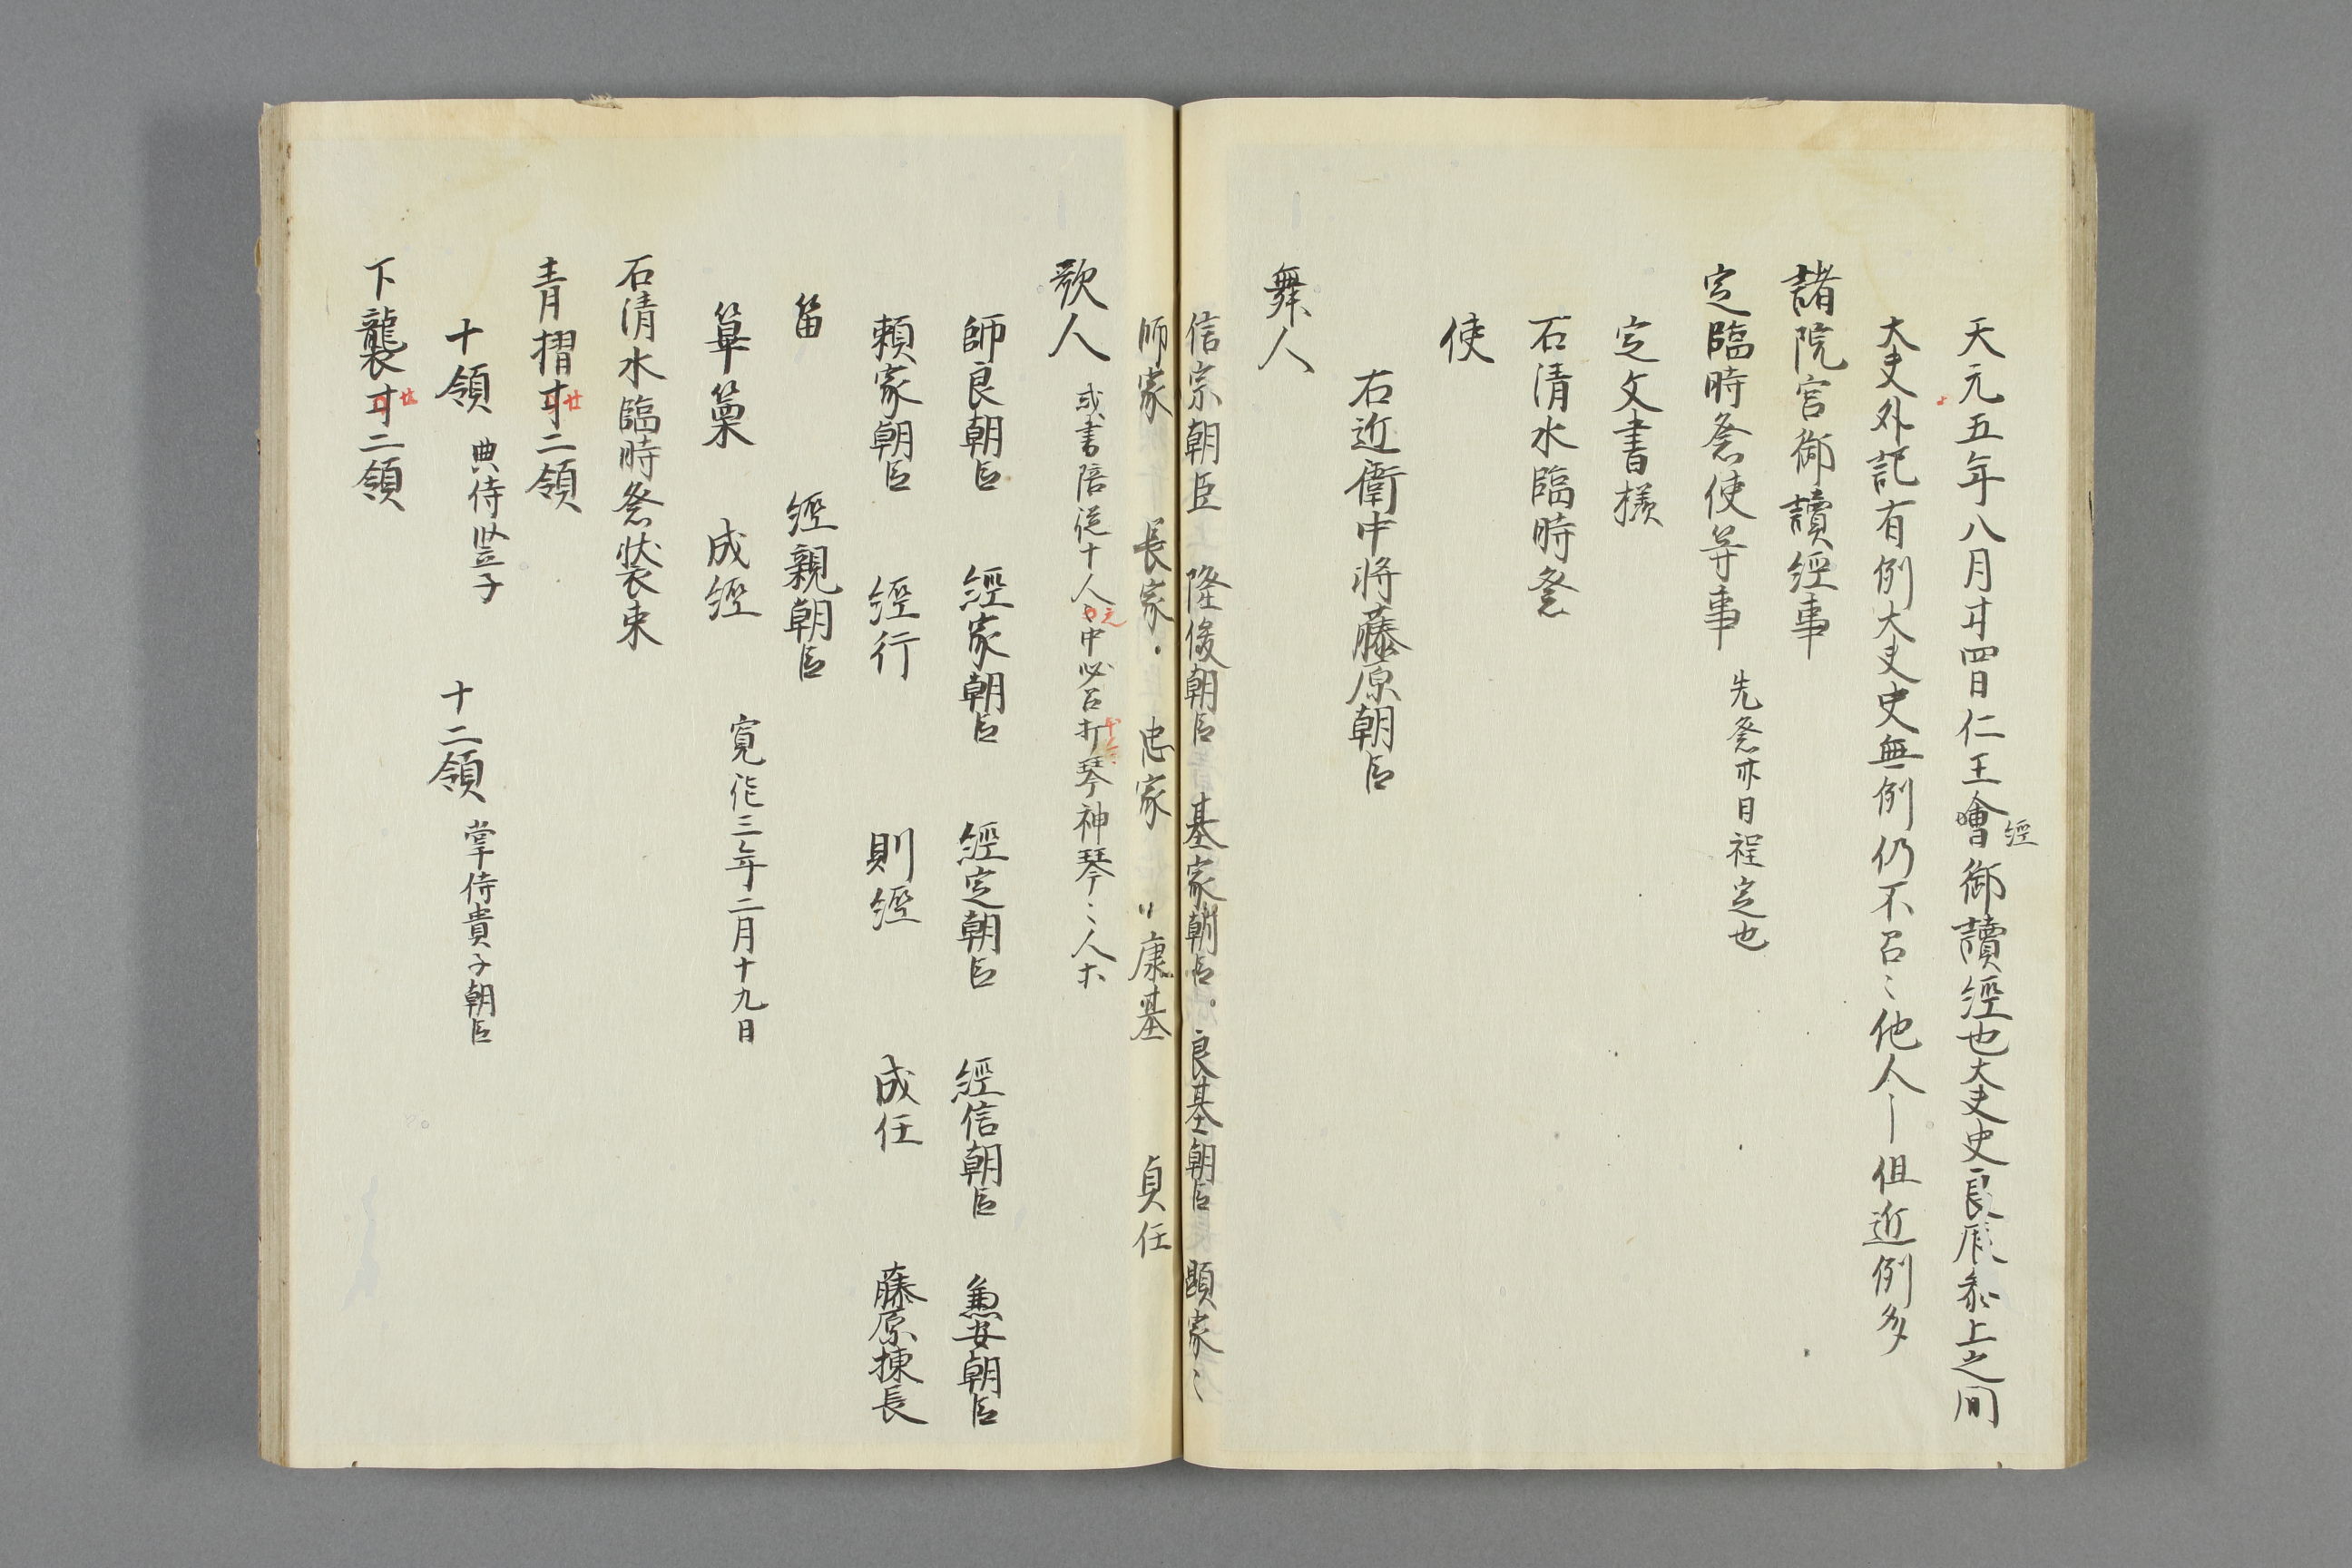 天元五年八月廿四日仁王會御讀經也大夫史良辰參上之间
經
大夫外記有例大夫史無例仍不召〻他人但近例多
諸院宮御讀經事
定臨時祭使等事 先祭亦日程定也
定文書様
石清水臨時祭
使
右近衛中将藤原朝臣
舞人
信宗朝臣 隆俊朝臣 基家朝臣 良基朝臣 顕家〻
師家 長家 忠家 〃康基 貞任
歌人 或書陪従十人〻中必召打琴神琴〻人木
師良朝臣 經家朝臣 經定朝臣 經信朝臣 兼安朝臣
頼家朝臣 經行 則經 成任 藤原棟長
笛 經親朝臣
篳篥 成經 寛徳三年二月十九日
石清水臨時祭装束
青摺廿二領
廿
十領 典侍豎子 十二領 掌侍貴子朝臣
下襲廿二領
廿